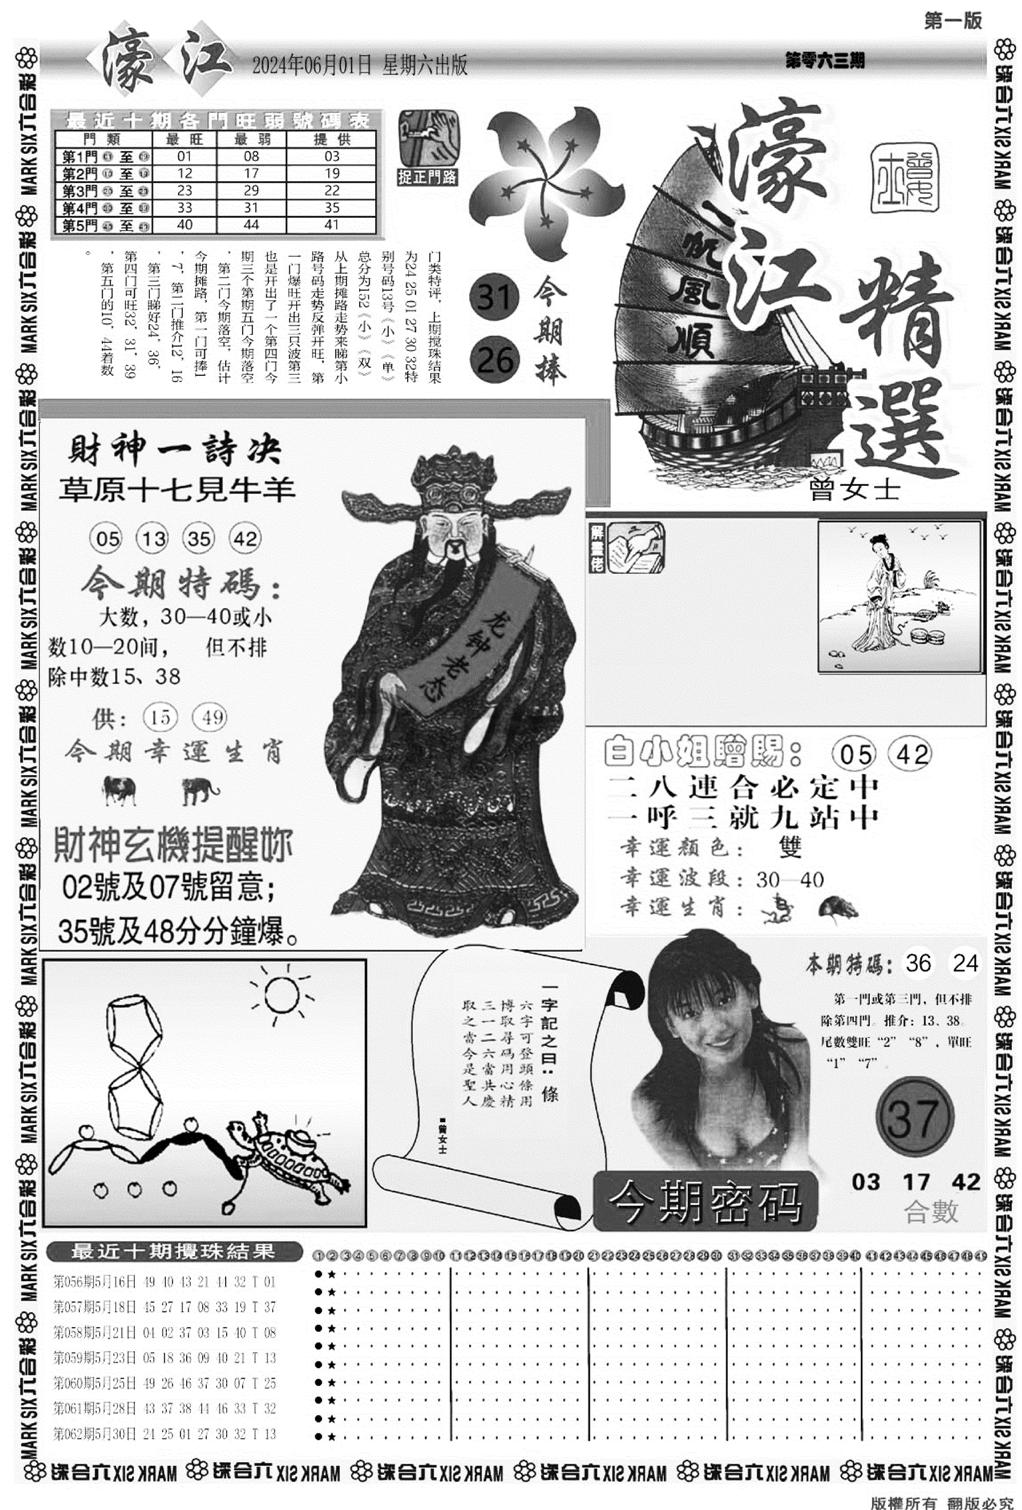 第一版
濠江
2024年06月01日 星期六出版
第零六三期
最近十期各門旺弱號碼表
門類 最旺 最弱 提供
第1門 至 01 08 03
第2門 至 12 17 19
第3門 至 23 29 22
第4門 至 33 31 35
第5門 至 40 44 41
捉正門路
门类特评，上期搅珠结果
为24 25 01 27 30 32特
别号码13号《小》《单》
总分为152《小》《双》
从上期摊路走势来睇第小
路号码走势反弹开旺，第
一门爆旺开出三只波第三
也是开出了一个第四门今
期三个第期五门今期落空
，第二门今期落空，估计
今期摊路，第一门可捧1
，7，第二门推介12，16
，第三门睇好24，36，
第四门可旺32，31，39
，第五门的10，44着数
。
31
26
今期捧
一帆風順
濠江
精選
曾女士
財神一詩决
草原十七見牛羊
05 13 35 42
今期特碼：
大数，30—40或小
数10—20间， 但不排
除中数15、38
供：15 49
今期幸運生肖
財神玄機提醒妳
02號及07號留意；
35號及48分分鐘爆。
龙钟老态
解畫佬
白小姐贈賜：05 42
二八連合必定中
一呼三就九站中
幸運顏色： 雙
幸運波段：30—40
幸運生肖：
一字記之曰：條
六字可登頭條用
博取尋碼用心精
三一二六當共慶
取之當今是聖人
■曾女士
本期特碼：36 24
第一門或第三門，但不排
除第四門。推介：13、38。
尾數雙旺“2” “8”，單旺
“1” “7”
37
03 17 42
合數
今期密码
最近十期攪珠結果
①②③④⑤⑥⑦⑧⑨⑩⑪⑫⑬⑭⑮⑯⑰⑱⑲⑳㉑㉒㉓㉔㉕㉖㉗㉘㉙㉚㉛㉜㉝㉞㉟㊱㊲㊳㊴㊵㊶㊷㊸㊹㊺㊻㊼㊽㊾
第056期5月16日 49 40 43 21 44 32 T 01
第057期5月18日 45 27 17 08 33 19 T 37
第058期5月21日 04 02 37 03 15 40 T 08
第059期5月23日 05 18 36 09 40 21 T 13
第060期5月25日 49 26 46 37 30 07 T 25
第061期5月28日 43 37 38 44 46 33 T 32
第062期5月30日 24 25 01 27 30 32 T 13
MARK SIX 六合彩
版權所有 翻版必究